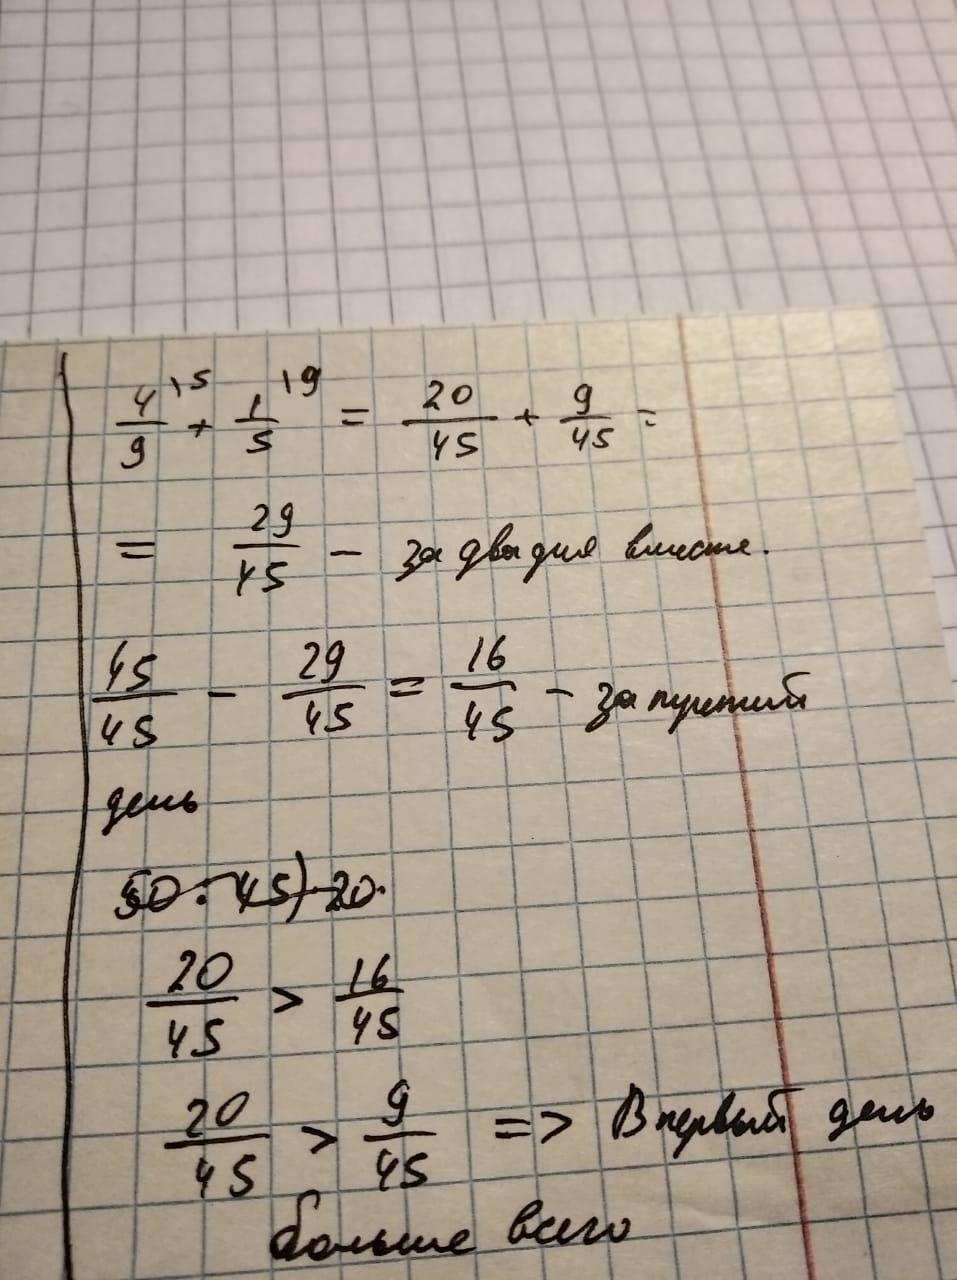 4/9 \5 + 1/5 \9 = 20/45 + 9/45 =
= 29/45 - за два дня вместе.
45/45 - 29/45 = 16/45 - за третий
день
20/45 > 16/45
20/45 > 9/45 => В первый день
больше всего